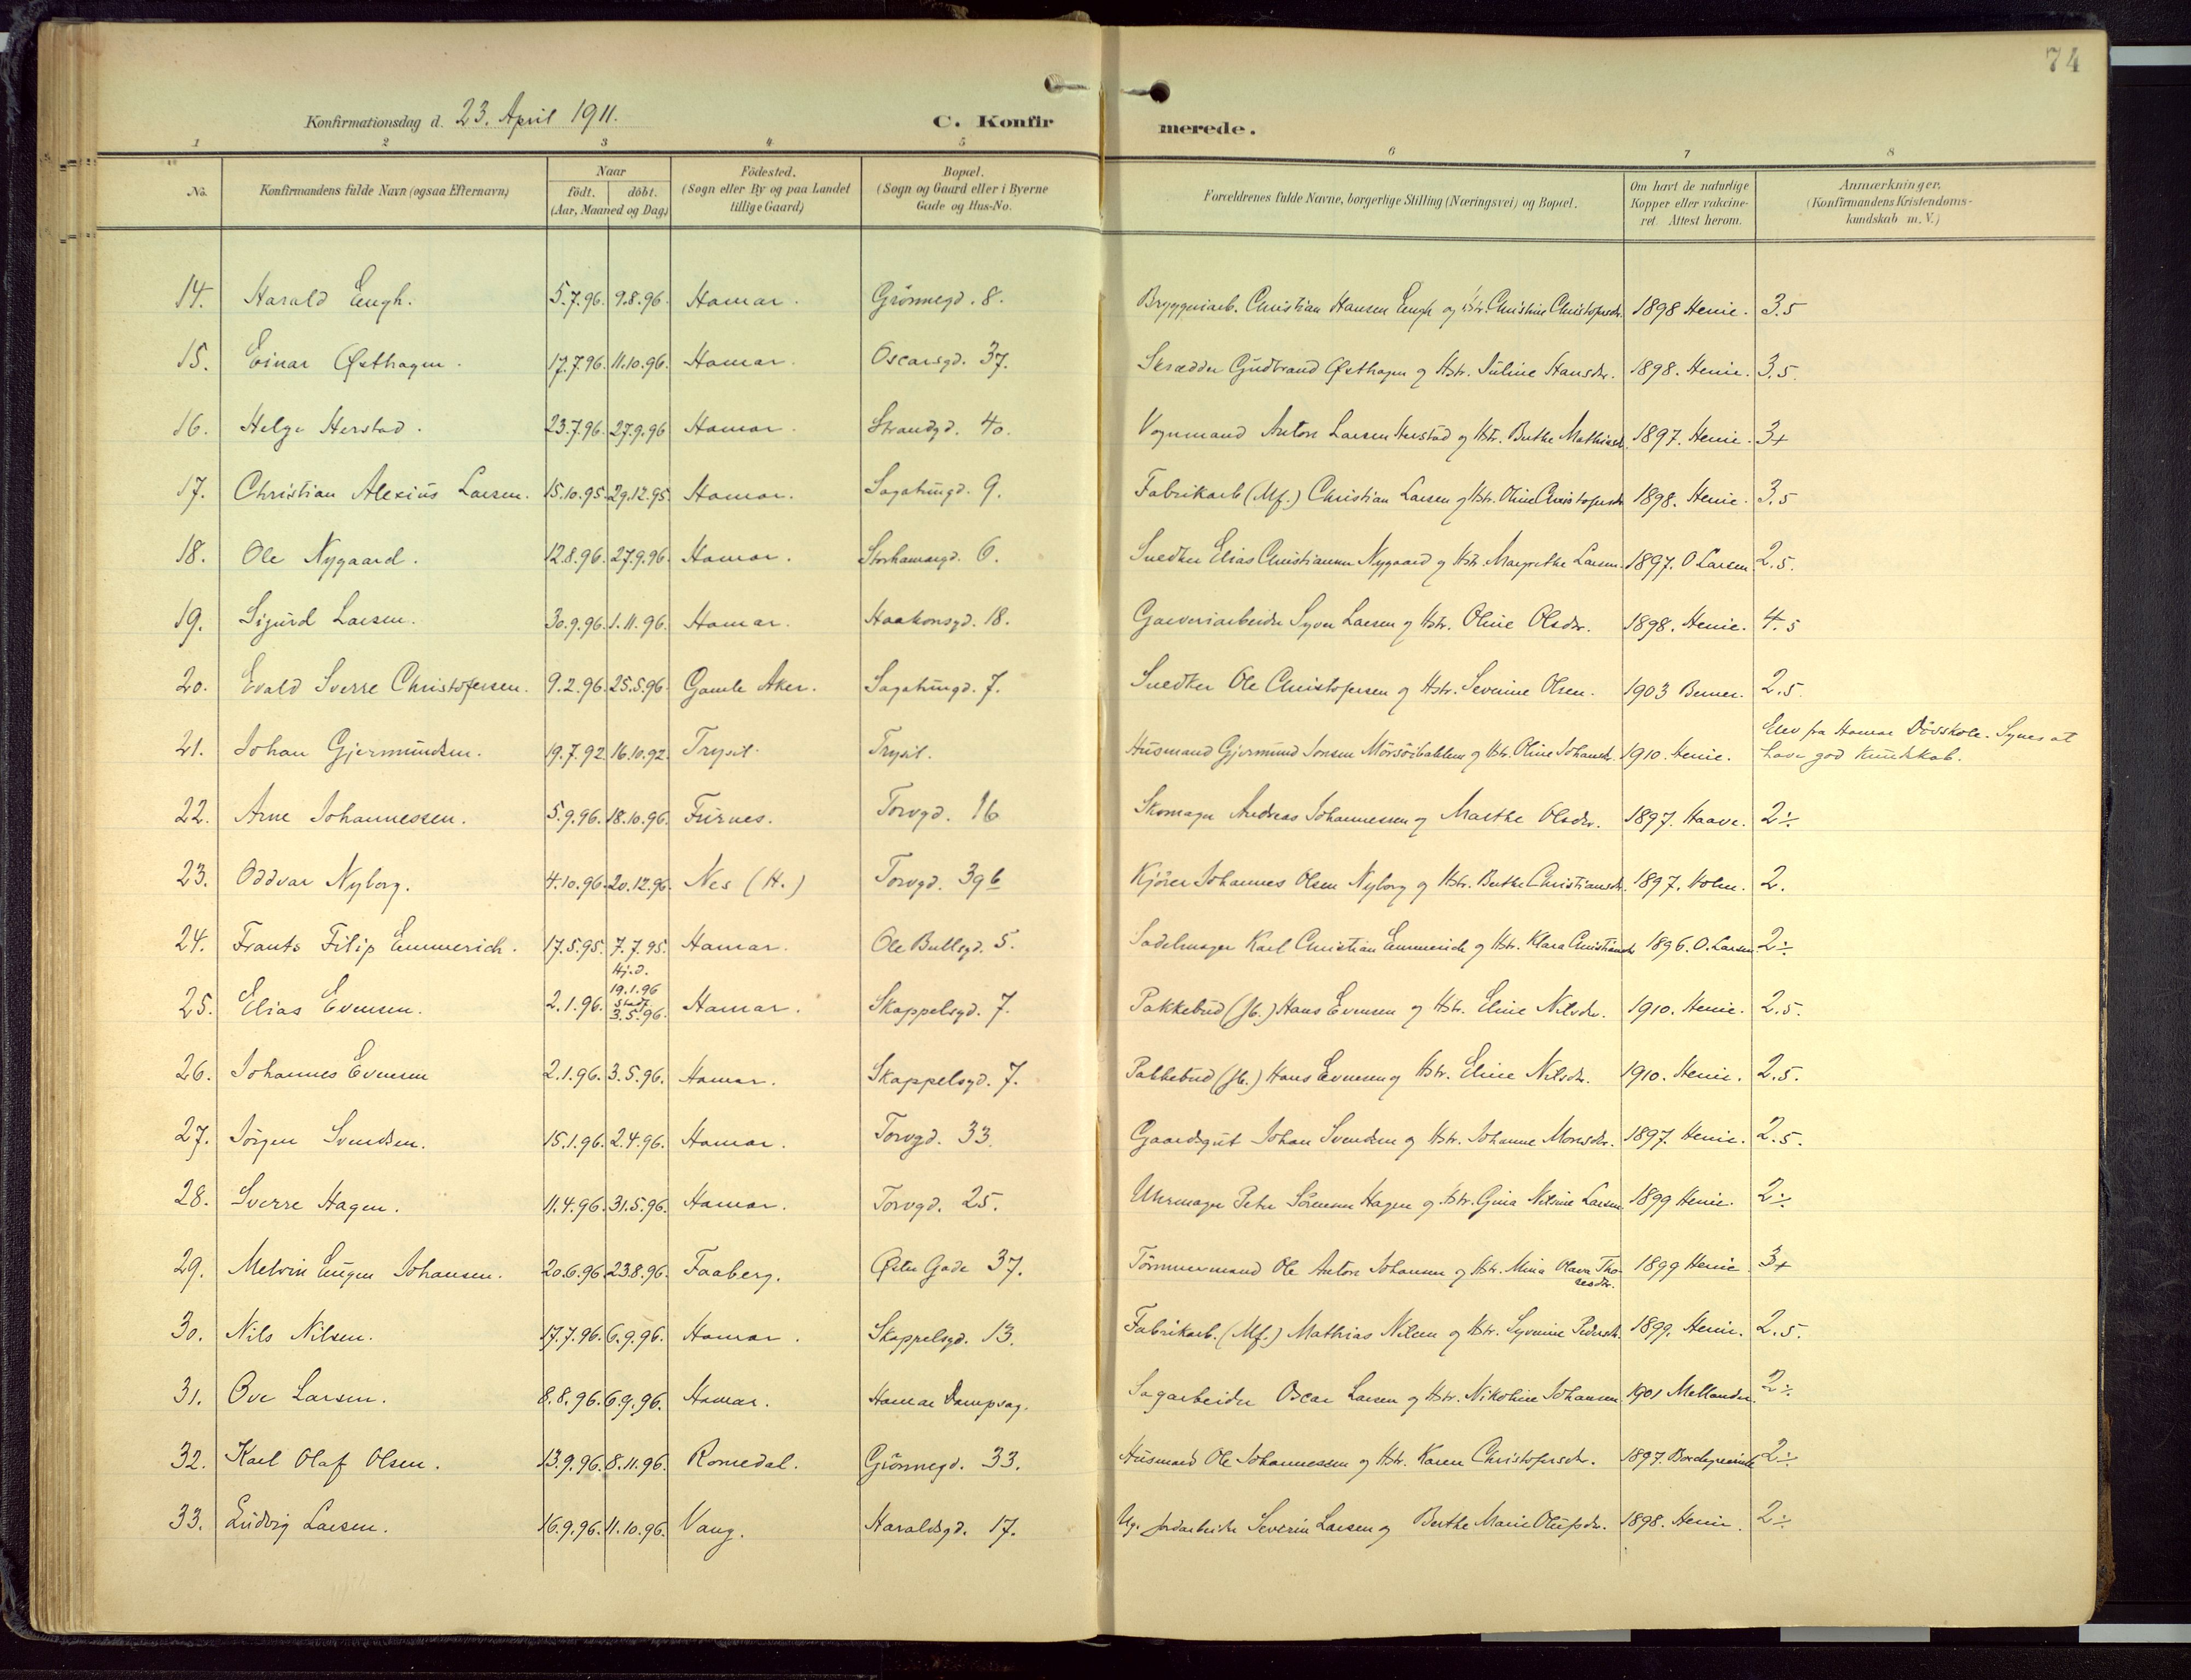 74
Konfirmationsdag d. 23. April 1911.
C. Konfirmerede.
1 2 3 4 5 6 7 8
No. Konfirmandens fulde Navn (ogsaa Efternavn) Naar födt. döbt. (Aar, Maaned og Dag) Födested. (Sogn eller By og paa Landet tillige Gaard) Bopæl. (Sogn og Gaard eller i Byerne Gade og Hus-No. Forældrenes fulde Navne, borgerlige Stilling (Næringsvei) og Bopæl. Om havt de naturlige Kopper eller vakcineret. Attest herom. Anmærkninger. (Konfirmandens Kristendomskundskab m. V.)
14. Harald Engh. 5.7.96. 9.8.96. Hamar. Grönnegd. 8. Bryggeriarb. Christian Hansen Engh og Hstr. Christine Christofersdr. 1898 Henie. 3.5
15. Einar Østhagen. 17.7.96. 11.10.96. Hamar. Oscarsgd. 37. Skrædder Gudbrand Østhagen og Hstr. Juline Hansdr. 1898. Henie. 3.5.
16. Helge Herstad. 23.7.96. 27.9.96 Hamar. Strandgd. 40. Vognmand Anton Larsen Herstad og Hstr. Berthe Mathisdr. 1897. Henie. 3+
17. Christian Alexius Larsen. 15.10.95. 29.12.95. Hamar. Sagatungd. 9. Fabrikarb (Mf.) Christian Larsen og Hstr. Oline Christofersdr. 1898. Henie. 3.5
18. Ole Nygaard. 12.8.96. 27.9.96. Hamar. Storhamargd. 6. Snedker Elias Christiansen Nygaard og Hstr. Margrethe Larsen. 1897. O Larsen. 2.5.
19. Sigurd Larsen. 30.9.96. 1.11.96. Hamar. Haakonsgd. 18. Garveriarbeider Syver Larsen og Hstr. Oline Olsdr. 1898. Henie. 4.5
20. Evald Sverre Christofersen. 9.2.96. 25.5.96. Gamle Aker. Sagatungd. 7. Snedker Ole Christofersen og Hstr. Severine Olsen. 1903 Berner. 2.5.
21. Johan Gjermundsen. 19.7.92. 16.10.92. Trysil. Trysil. Husmand Gjermund Jonsen og Hstr. Oline Johansdr. 1910. Henie. Elev fra Hamar Døvskole. Synes at
have god Kundskab.
22. Arne Johannessen. 5.9.96. 18.10.96. Furnes. Torvgd. 16 Skomager Andreas Johannessen og Marthe Olsdr. 1897. Haave. 2÷
23. Oddvar Nyborg. 4.10.96. 20.12.96. Nes (H.) Torvgd. 39b Kjörer Johannes Olsen Nyborg og Hstr. Berthe Christiansdr. 1897. Holm. 2.
24. Frants Filip Emmerich. 17.5.95. 7.7.95. Hamar. Ole Bullsgd. 5. Sadelmager Karl Christian Emmerich og Hstr. Klara Christiansdr. 1896. O. Larsen. 2÷
25. Elias Evensen. 2.1.96. Hj.d. 19.1.96 Stadf. 3.5.96. Hamar. Skappelsgd. 7. Pakkebud (Jb.) Hans Evensen og Hstr. Eline Nilsdr. 1910. Henie. 2.5.
26. Johannes Evensen 2.1.96. 3.5.96. Hamar. Skappelsgd. 7. Pakkebud (Jb.) Hans Evensen og Hstr. Eline Nilsdr. 1910. Henie. 2.5.
27. Jörgen Svendsen. 15.1.96. 2.4.96. Hamar. Torvgd. 33. Gaardsgut Johan Svendsen og Hstr. Johanne Monsdr. 1897. Henie. 2.5.
28. Sverre Hagen. 11.4.96. 31.5.96. Hamar. Torvgd. 25. Uhrmager Peter Sörensen Hagen og Hstr. Gina Nilsine Larsen. 1899 Henie. 2÷
29. Melvin Eugen Johansen. 20.6.96. 23.8.96. Faaberg. Øster Gade 37. Tömmermand Ole Anton Johansen og Hstr. Mina Olava Thoresdr. 1899 Henie. 3+
30. Nils Nilsen. 17.7.96. 6.9.96. Hamar. Skappelsgd. 13. Fabrikarb. (Mf.) Mathias Nilsen og Hstr. Syverine Pedersdr. 1899. Henie. 2.5.
31. Ove Larsen. 8.8.96. 6.9.96. Hamar. Hamar Dampsag. Sagarbeider Oscar Larsen og Hstr. Nikoline Johansen. 1901 Mellander. 2÷
32. Karl Olaf Olsen. 13.9.96. 8.11.96. Romedal. Grönnegd. 33. Husmand Ole Johannessen og Hstr. Karen Christofersdr. 1897. 2÷
33. Ludvig Larsen. 16.9.96. 11.10.96. Vang. Haraldsgd. 17. Ug. Jordarbeider Severin Larsen og Berthe Marie Olufsdr. 1898. Henie. 2÷